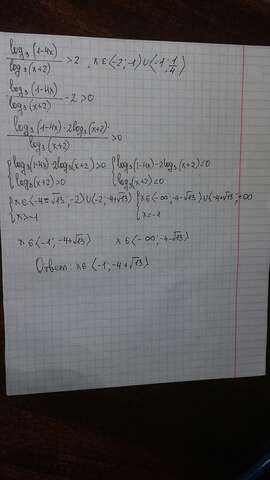 log₃(1-4x)/log₃(x+2) > 2 , x∈(-2;-1)∪(-1;1/4)
log₃(1-4x)/log₃(x+2) - 2 > 0
log₃(1-4x)-2log₃(x+2)/log₃(x+2) > 0
{log₃(1-4x)-2log₃(x+2)>0 {log₃(1-4x)-2log₃(x+2)<0
{log₃(x+2)>0 {log₃(x+2)<0
{x∈(-4-√13;-2)∪(-2;-4+√13) {x∈(-∞;-4-√13)∪(-4+√13;+∞
{x>-1 {x<-1
x∈(-1;-4+√13) x∈(-∞;-4-√13)
Ответ: x∈(-1;-4+√13)